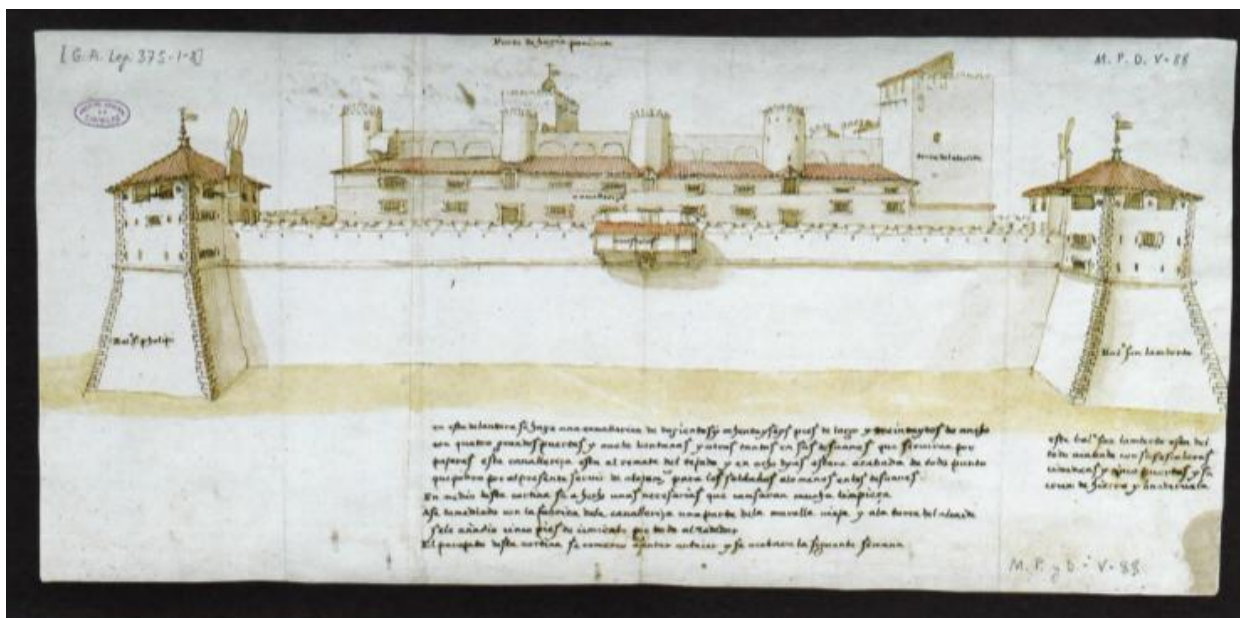 [G. A. Leg. 375-1-2]
M. P. D. V-88
Parte de hazia poniente
torre del alcaide
cavalleriza
Bal.te S. phelipe
Bal.te san lamberto
en esta delantera se haze una cavalleriza de dozientos y ochenta y seys pies de largo y treinta y dos de ancho
con quatro grandes puertas y nueve bentanas y otras tantas en sus desvanes que serviran por
pajares esta cavalleriza esta al remate del tejado y en ocho dias estara acabada de todo punto
que podra por al presente servir de alojam.to para los soldados alo menos en los desvanes
En medio desta cortina se a hecho unas necesarias que causaran mucha limpieza
Ase remediado con la fabrica dela cavalleriza una parte dela muralla vieja y ala torre del alcaide
se le añadio cinco pies de cimiento por todo al rededor
El parapeto desta cortina se comenzo y se acabara la siguiente semana
este bal.te san lamberto esta del
todo acabado con sus escaleras
chimeneas y puertas y su
cruz de hierro y banderuela
M. P. y D. - V-88